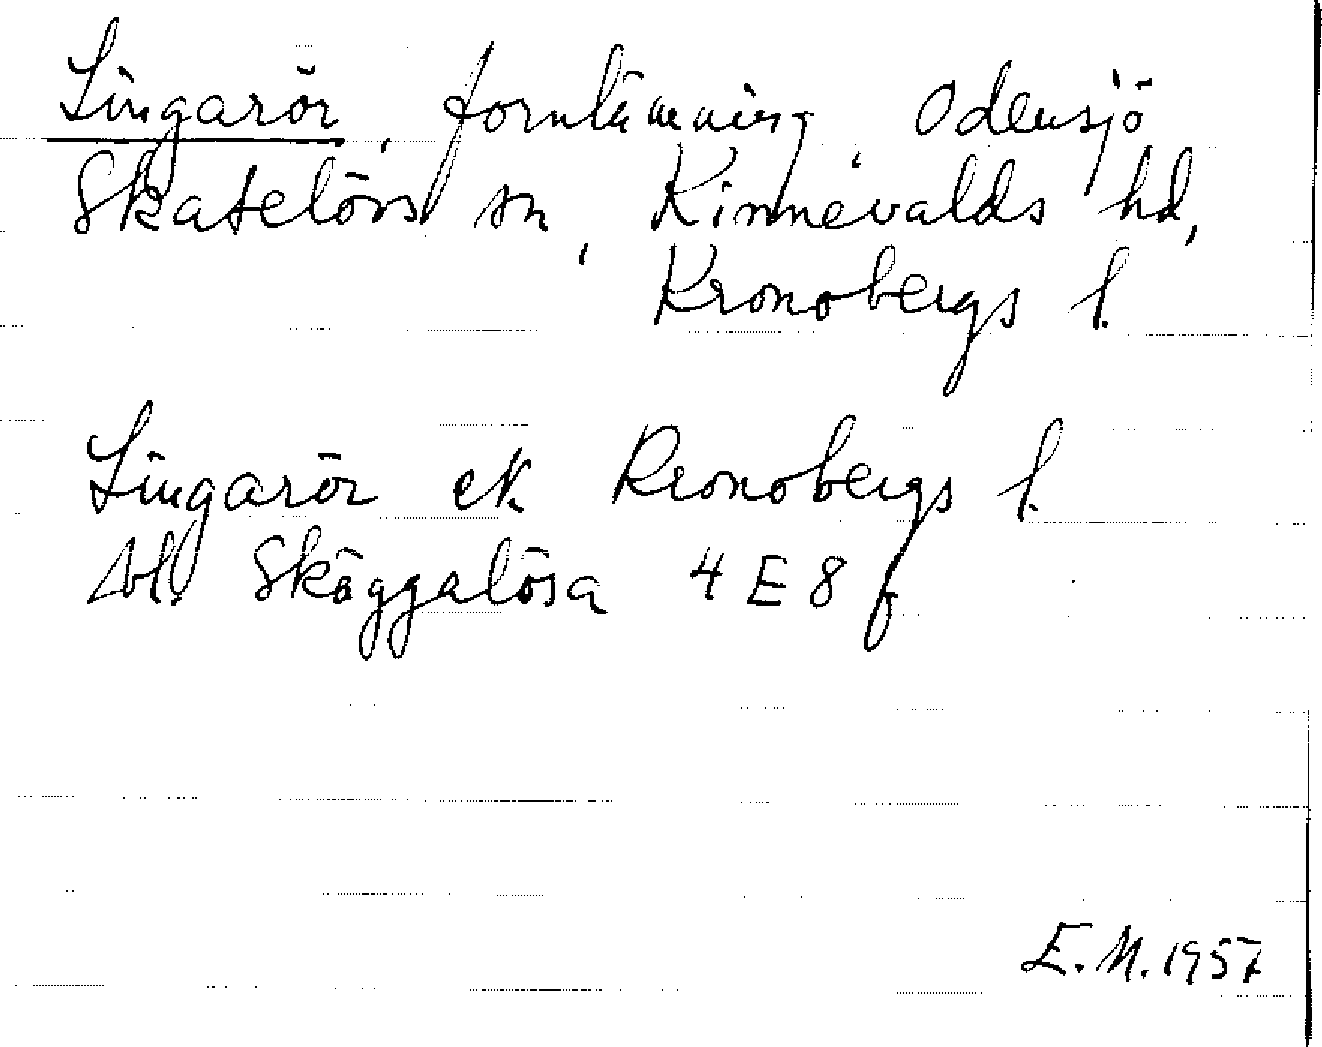 Lingarör, fornlämning, Odensjö,
Skatelövs sn, Kinnevalds hd,
Kronobergs l.
Lingarör ek Kronobergs l.
bl. Skäggalösa 4 E 8 f
E.M. 1957